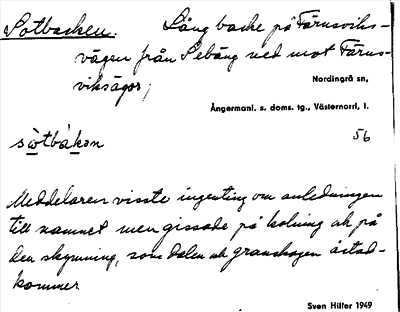 Sotbacken. Lång backe på Färnsviks-
vägen från Sebäng ned mot Färns-
viksågor;
Nordingrå sn,
Ångermanl. s. doms. tg., Västernorrl, l.
56
sὼtbákən
Meddelaren visste ingenting om anledningen
till namnet men gissade på kolning ock på
den skymning, som dalen ock granskogen åstad-
kommer
Sven Hiller 1949